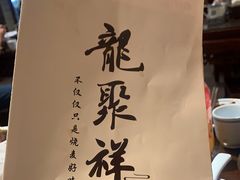 龍聚祥
不仅仅只是烧麦好吃